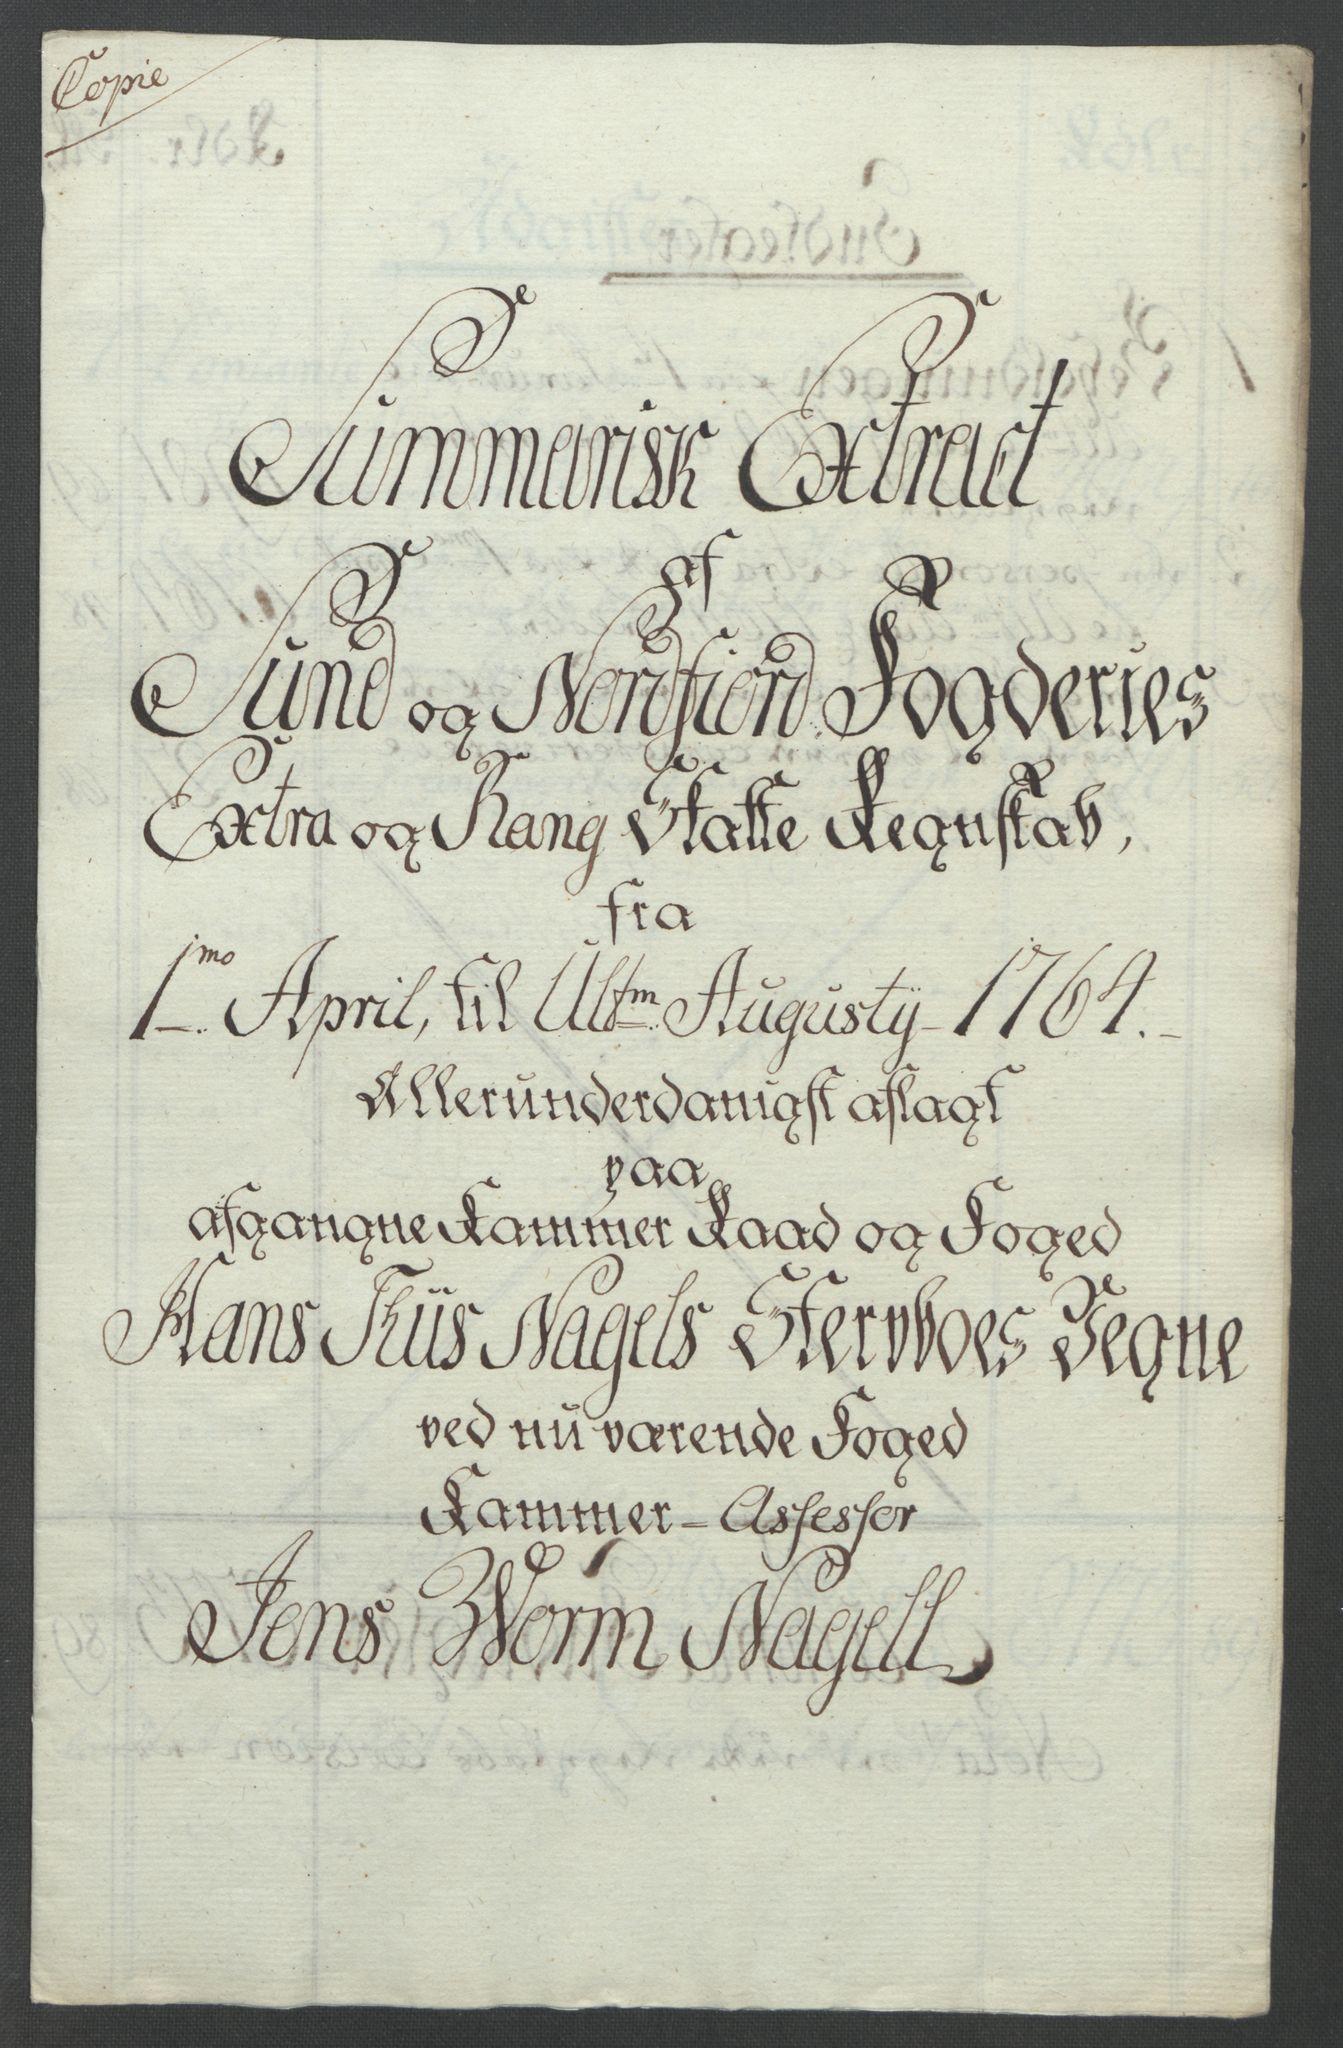 Copie
Summarisk Extract
af
Sund og Nordfiord Fogderies
Extra og Rang Skatte Regnskab,
fra
1mo April, til Ultm Augusty 1764.
Allerunderdanigst aflagt
paa
afgangne Kammer Raad og Foged
Hans Thiis Nagels Stervboes Vegne
ved nu værende Foged
Kammer-Assessor
Jens Worm Nagell